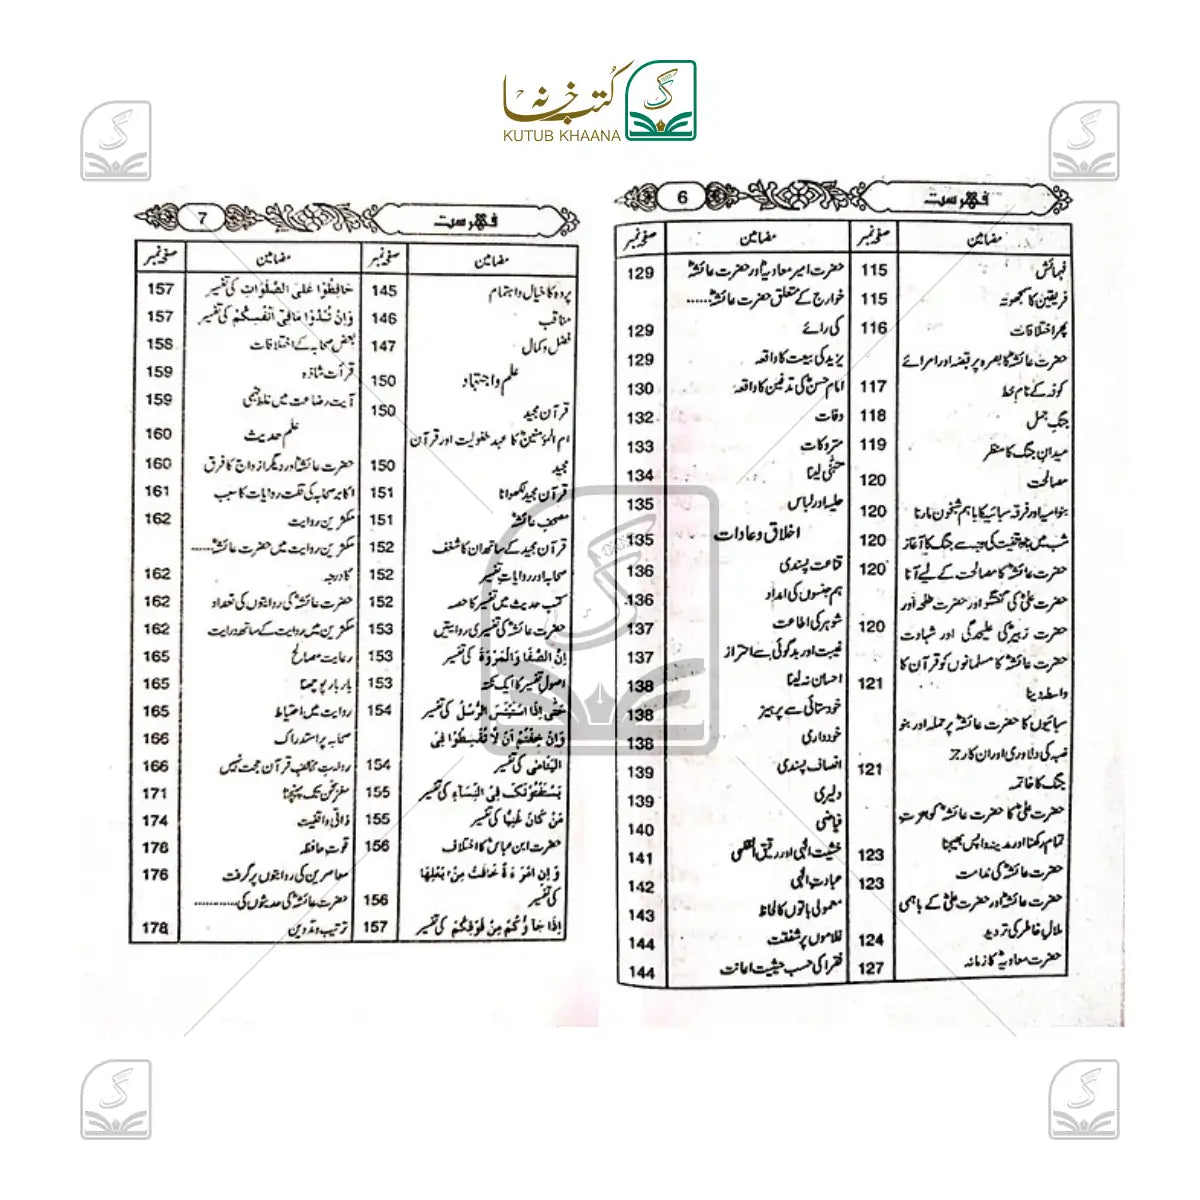 کتب خانہ
KUTUB KHAANA
6
فہرست
مضامین
صفحہ نمبر
فہمائش 115
فریقین کا سمجھوتہ 115
پھر اختلافات 116
حضرت عائشہؓ کا بصرہ پر قبضہ اور امرائے
کوفہ کے نام خط 117
جنگِ جمل 118
میدانِ جنگ کا منظر 119
مصالحت 120
بنوامیہ اور فرقہ سبائیہ کا باہم شبخون مارنا 120
شب میں کی وجہ سے جنگ کا آغاز 120
حضرت عائشہؓ کا مصالحت کے لیے آنا 120
حضرت علیؓ کی گفتگو اور حضرت طلحہؓ اور
حضرت زبیرؓ کی علیحدگی اور شہادت 120
حضرت عائشہؓ کا مسلمانوں کو قرآن کا
واسطہ دینا 121
سبائیوں کا حضرت عائشہؓ پر حملہ اور بنو
ضبہ کی دلاوری اور ان کا رجز 121
جنگ کا خاتمہ
حضرت علیؓ کا حضرت عائشہؓ کو بعزت
تمام رکھنا اور مدینہ واپس بھیجنا 123
حضرت عائشہؓ کی ندامت 123
حضرت عائشہؓ اور حضرت علیؓ کے باہمی
ملالِ خاطر کی تردید 124
حضرت معاویہؓ کا زمانہ 127
مضامین
صفحہ نمبر
حضرت امیر معاویہؓ اور حضرت عائشہؓ 129
خوارج کے متعلق حضرت عائشہؓ......
کی رائے 129
یزید کی بیعت کا واقعہ 129
امام حسنؓ کی تدفین کا واقعہ 130
وفات 132
متروکات 133
متبنّٰی لینا 134
حلیہ اور لباس 135
اخلاق و عادات 135
قناعت پسندی 136
ہم جنسوں کی امداد 136
شوہر کی اطاعت 137
غیبت اور بدگوئی سے احتراز 137
احسان نہ لینا 138
خودستائی سے پرہیز 138
خودداری 138
انصاف پسندی 139
دلیری 139
فیاضی 140
خشیتِ الٰہی اور رقیق القلبی 141
عبادتِ الٰہی 142
معمولی باتوں کا لحاظ 143
غلاموں پر شفقت 144
فقرا کی حسب حیثیت اعانت 144
7
فہرست
مضامین
صفحہ نمبر
پردہ کا خیال و اہتمام 145
مناقب 146
فضل و کمال 147
علم و اجتہاد 150
قرآن مجید 150
ام المؤمنینؓ کا عہد طفولیت اور قرآن
مجید 150
قرآن مجید لکھوانا 151
مصحفِ عائشہؓ 151
قرآن مجید کے ساتھ ان کا شغف 152
صحابہ اور روایاتِ تفسیر 152
کتب حدیث میں تفسیر کا حصہ 152
حضرت عائشہؓ کی تفسیری روایتیں 153
اِنَّ الصَّفَا وَالْمَرْوَةَ کی تفسیر 153
اصولِ تفسیر کا ایک نکتہ 153
حَتّٰى اِذَا اسْتَيْئَسَ الرُّسُلُ کی تفسیر 154
وَاِنْ خِفْتُمْ اَنْ لَا تُقْسِطُوْا فِى
الْيَتَامٰى کی تفسیر 154
يَسْتَفْتُوْنَكَ فِى النِّسَاءِ کی تفسیر 155
مَنْ كَانَ غَنِيًّا کی تفسیر 155
حضرت ابن عباسؓ کا اختلاف 156
وَاِنِ امْرَءَةٌ خَافَتْ مِنْ بَعْلِهَا
کی تفسیر 156
اِذْ جَاؤُكُمْ مِنْ فَوْقِكُمْ کی تفسیر 157
مضامین
صفحہ نمبر
حَافِظُوْا عَلَى الصَّلَوَاتِ کی تفسیر 157
وَاِنْ تُبْدُوْا مَا فِىْ اَنْفُسِكُمْ کی تفسیر 157
بعض صحابہ کے اختلافات 158
قرآت شاذہ 159
آیت رضاعت میں غلط فہمی 159
علم حدیث 160
حضرت عائشہؓ اور دیگر ازواج کا فرق 160
اکابر صحابہ کی قلت روایات کا سبب 161
مکثرین روایت 162
مکثرین روایت میں حضرت عائشہؓ......
کا درجہ 162
حضرت عائشہؓ کی روایتوں کی تعداد 162
مکثرین میں روایت کے ساتھ درایت 162
رعایت مصالح 165
بار بار پوچھنا 165
روایت میں احتیاط 165
صحابہ پر استدراک 166
روایت مخالفِ قرآن حجت نہیں 166
مغزِ سخن تک پہنچنا 171
ذاتی واقفیت 174
قوتِ حافظہ 176
معاصرین کی روایتوں پر گرفت 176
حضرت عائشہؓ کی حدیثوں کی............
ترتیب و تدوین 178